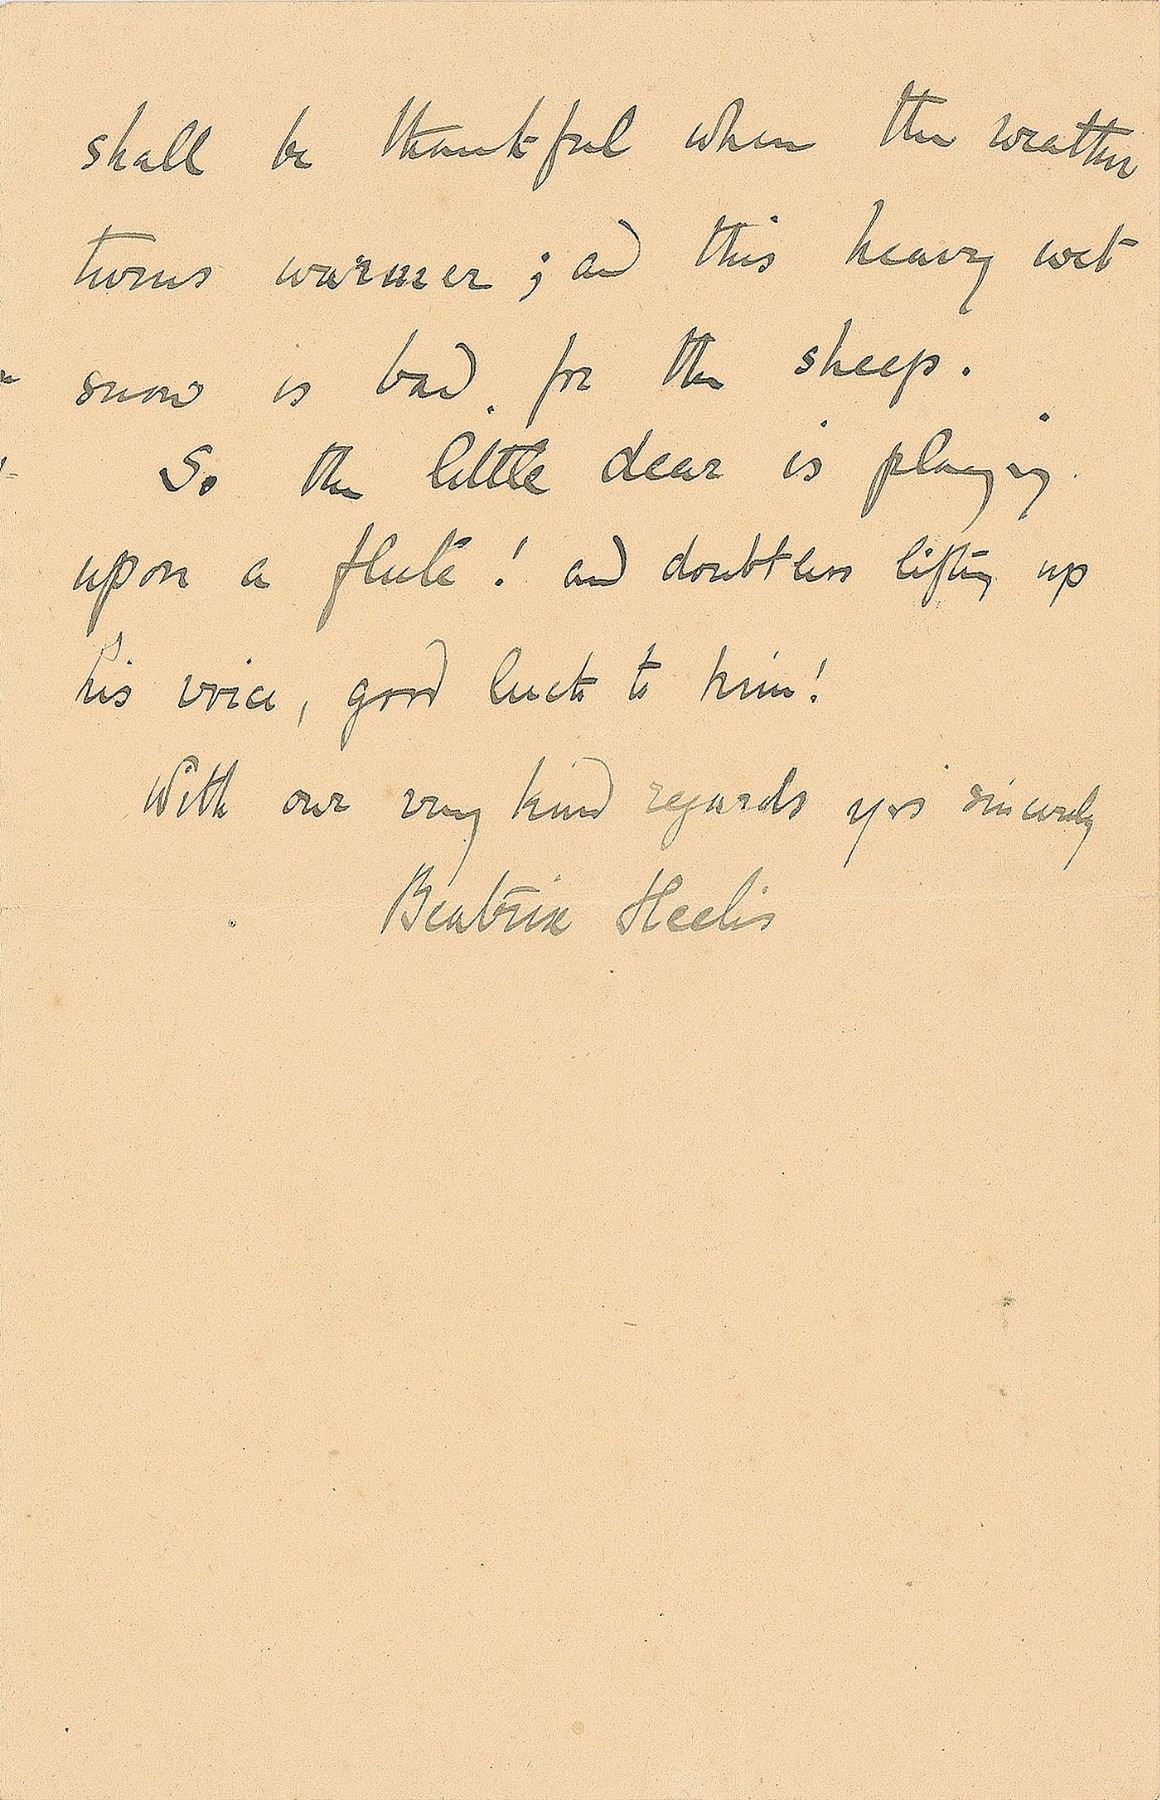 shall be thankful when the weather
turns warmer; and this heavy wet
snow is bad. for the sheep.
So the little dear is playing
upon a flute! and doubtless lifting up
his voice, good luck to him!
With our very kind regards yrs sincerely
Beatrix Heelis